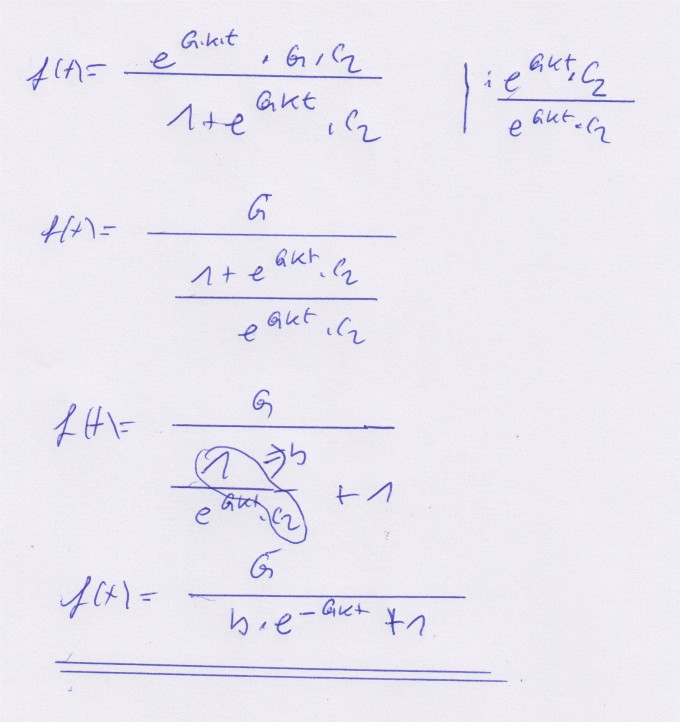 f(t) = \frac{e^{G·k·t} · G · C_2}{1 + e^{Gkt} · C_2} | : \frac{e^{Gkt} · C_2}{e^{Gkt} · C_2}
f(t) = \frac{G}{\frac{1 + e^{Gkt} · C_2}{e^{Gkt} · C_2}}
f(t) = \frac{G}{\frac{1}{e^{Gkt} · C_2} + 1} ⇒ b
f(t) = \frac{G}{b · e^{-Gkt} + 1}